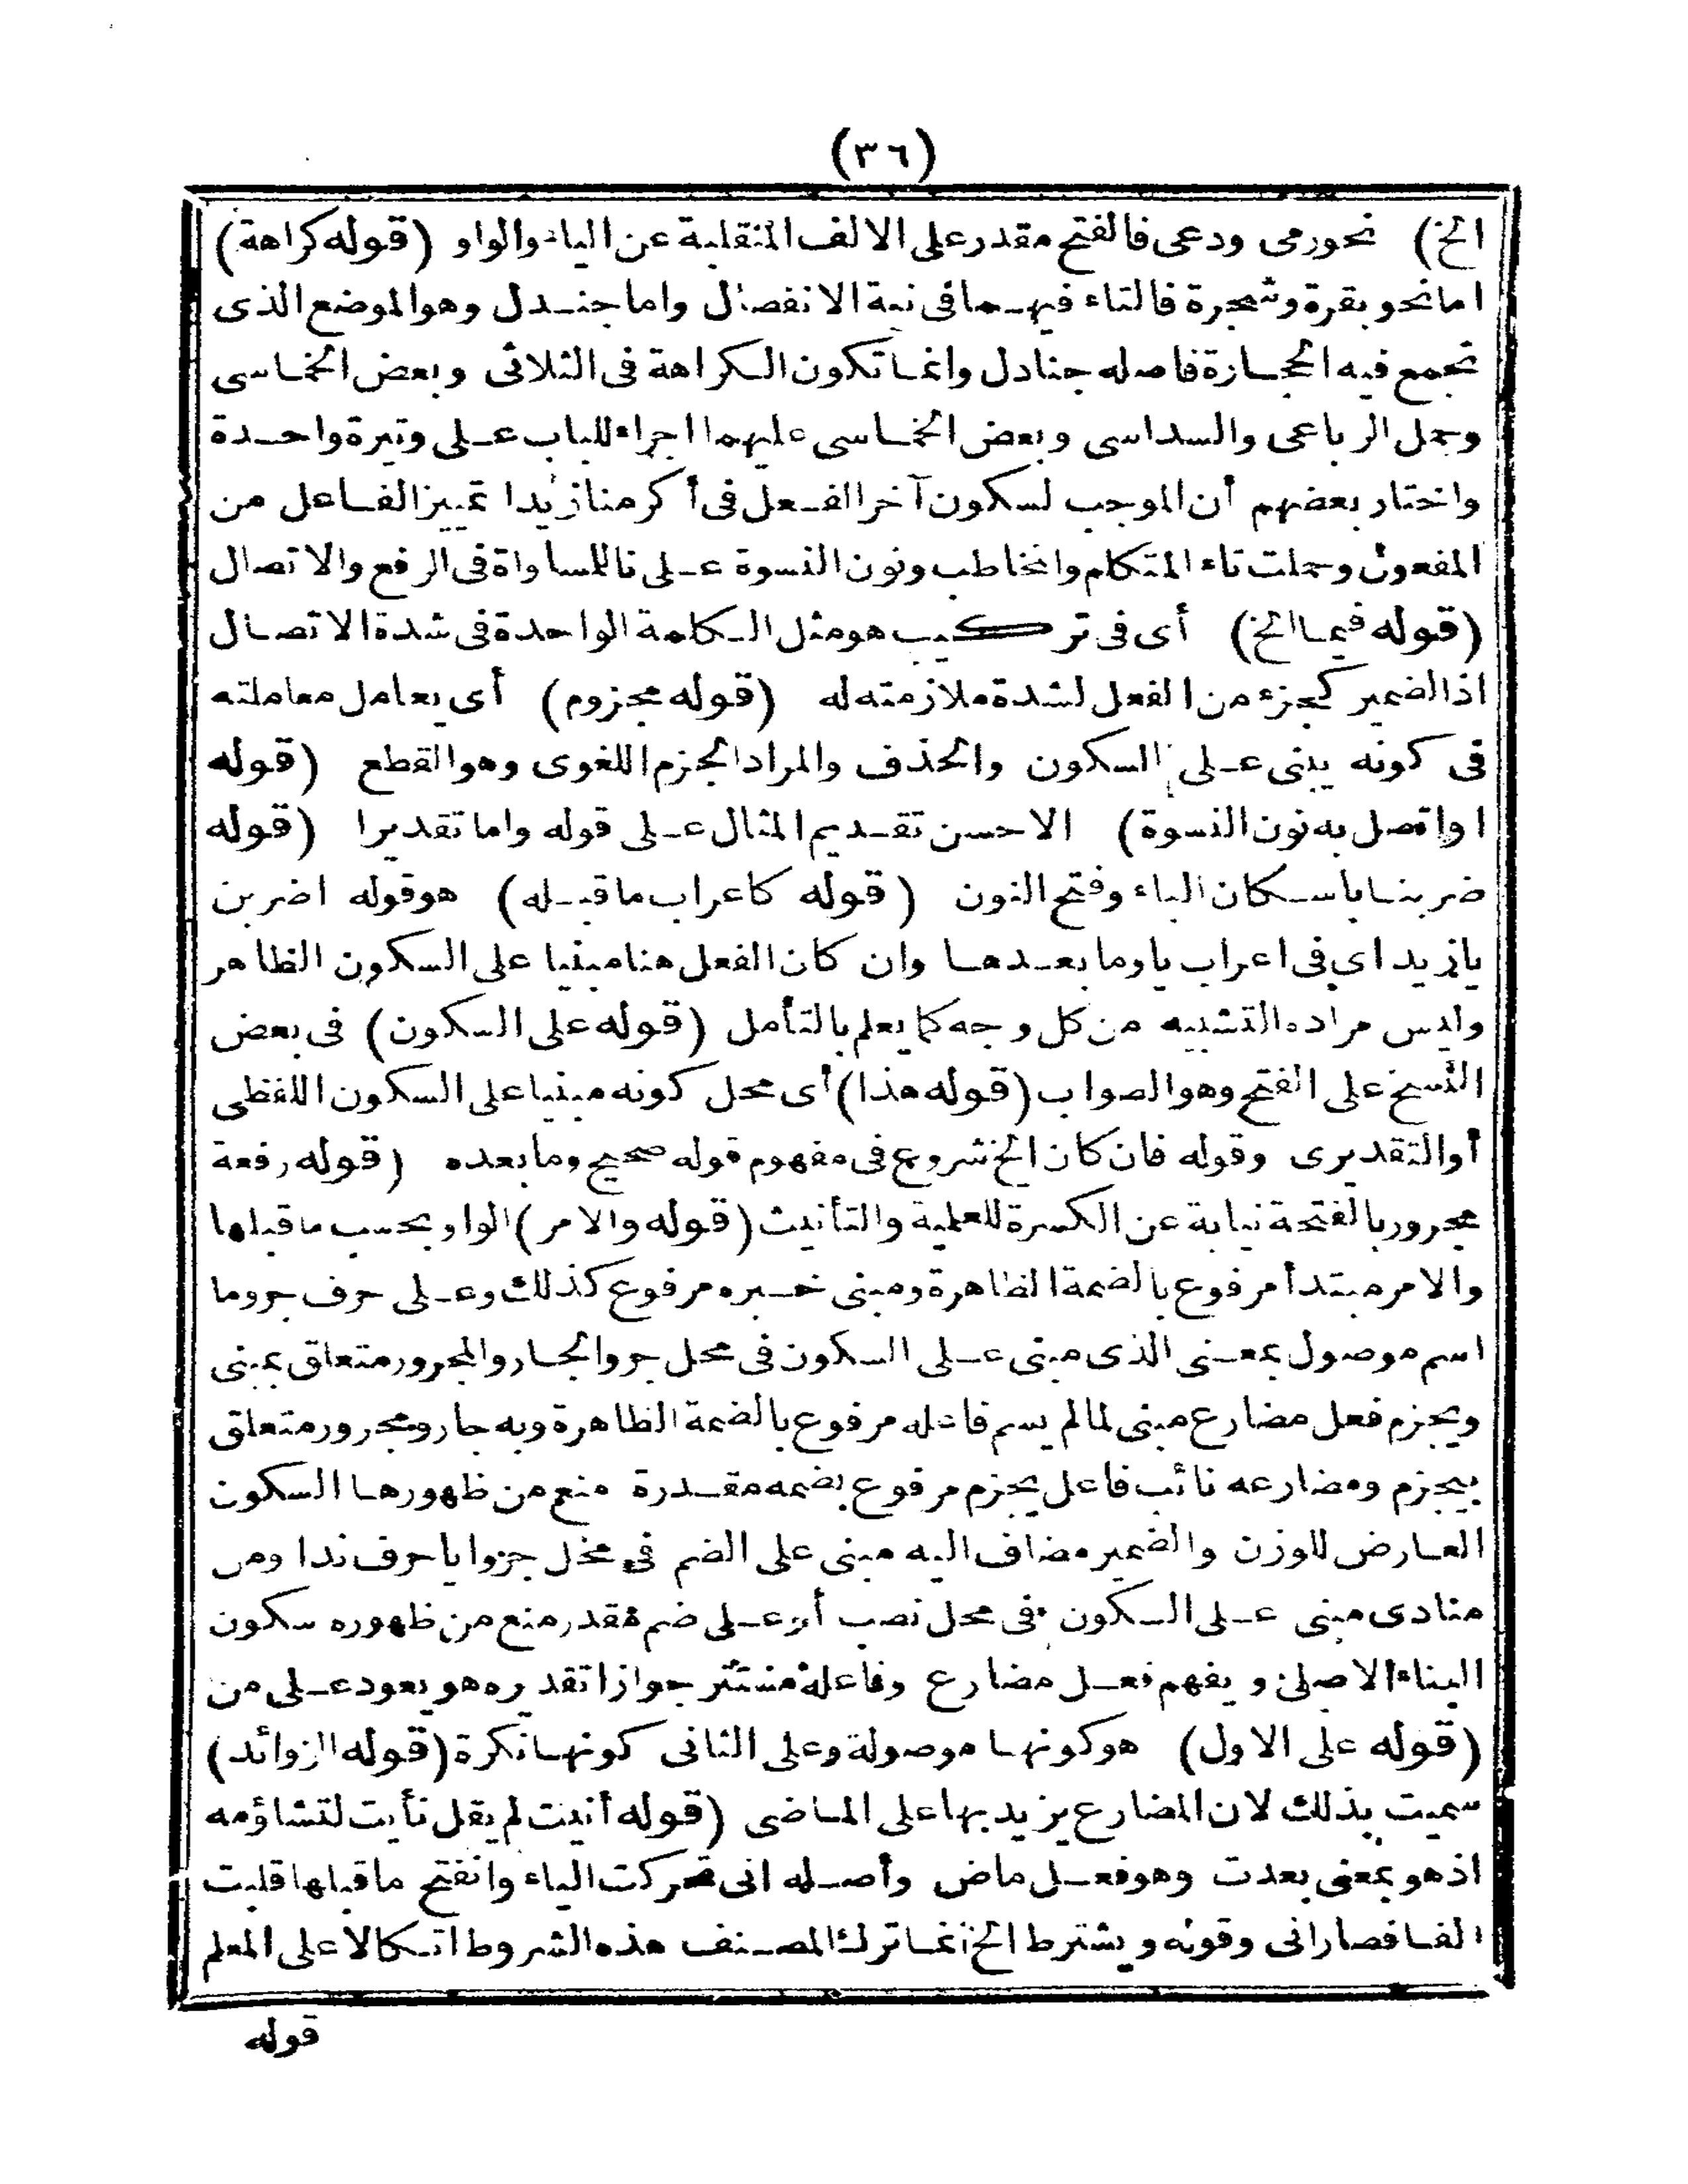 (٣٦)
الخ) نحو رمى ودعى فالفتح مقدر على الالف المنقلبة عن الياء والواو (قوله كراهة)
اما نحو بقرة وشجرة فالتاء فيهما فى نية الانفصال واما جندل وهو الموضع الذى
تجمع فيه الحجارة فاصله جنادل وانما تكون الكراهة فى الثلاثى وبعض الخماسى
وحمل الرباعى والسداسى وبعض الخماسى عليهما اجراء للباب على وتيرة واحدة
واختار بعضهم أن الموجب لسكون آخر الفعل فى أكرمنا زيدا تمييز الفاعل من
المفعول وحملت تاء المتكلم والمخاطب ونون النسوة على نا للمساواة فى الرفع والاتصال
(قوله فيما الخ) أى فى تركيب هو مثل الكلمة الواحدة فى شدة الاتصال
اذ الضمير كجزء من الفعل لشدة ملازمته له (قوله مجزوم) أى يعامل معاملته
فى كونه يبنى على السكون والحذف والمراد الجزم اللغوى وهو القطع (قوله
او اتصل به نون النسوة) الاحسن تقديم المثال على قوله واما تقديرا (قوله
ضربنا باسكان الباء وفتح النون (قوله كاعراب ما قبله) هو قوله اضربن
يا زيد اى فى اعراب يا وما بعدها وان كان الفعل هنا مبنيا على السكون الظاهر
وليس مراده التشبيه من كل وجه كما يعلم بالتأمل (قوله على السكون) فى بعض
النسخ على الفتح وهو الصواب (قوله هذا) أى محل كونه مبنيا على السكون اللفظى
أو التقديرى وقوله فان كان الخ شروع فى مفهوم قوله صحيح وما بعده (قوله رفعة
مجرور بالفتحة نيابة عن الكسرة للعلمية والتأنيث (قوله والامر) الواو بحسب ما قبلها
والامر مبتدأ مرفوع بالضمة الظاهرة ومبنى خبره مرفوع كذلك وعلى حرف جر وما
اسم موصول بمعنى الذى مبنى على السكون فى محل جر والجار والمجرور متعلق بمبنى
ويجزم فعل مضارع مبنى لما لم يسم فاعله مرفوع بالضمة الظاهرة وبه جار ومجرور متعلق
بيجزم ومضارعه نائب فاعل يجزم مرفوع بضمه مقدرة منع من ظهورها السكون
العارض للوزن والضمير مضاف اليه مبنى على الضم فى محل جر ويا حرف ندا ومن
منادى مبنى على السكون فى محل نصب أو على ضم مقدر منع من ظهوره سكون
البناء الاصلى ويفهم فعل مضارع وفاعله مستتر جوازا تقديره هو يعود على من
(قوله على الاول) هو كونها موصولة وعلى الثانى كونها نكرة (قوله الزوائد)
سميت بذلك لان المضارع يزيد بها على الماضى (قوله أنيت لم يقل نأيت لتشاؤمه
اذ هو بمعنى بعدت وهو فعل ماض وأصله انى تحركت الياء وانفتح ما قبلها قلبت
الفا فصار انى وقوله ويشترط الخ انما ترك المصنف هذه الشروط اتكالا على المعلم
قوله